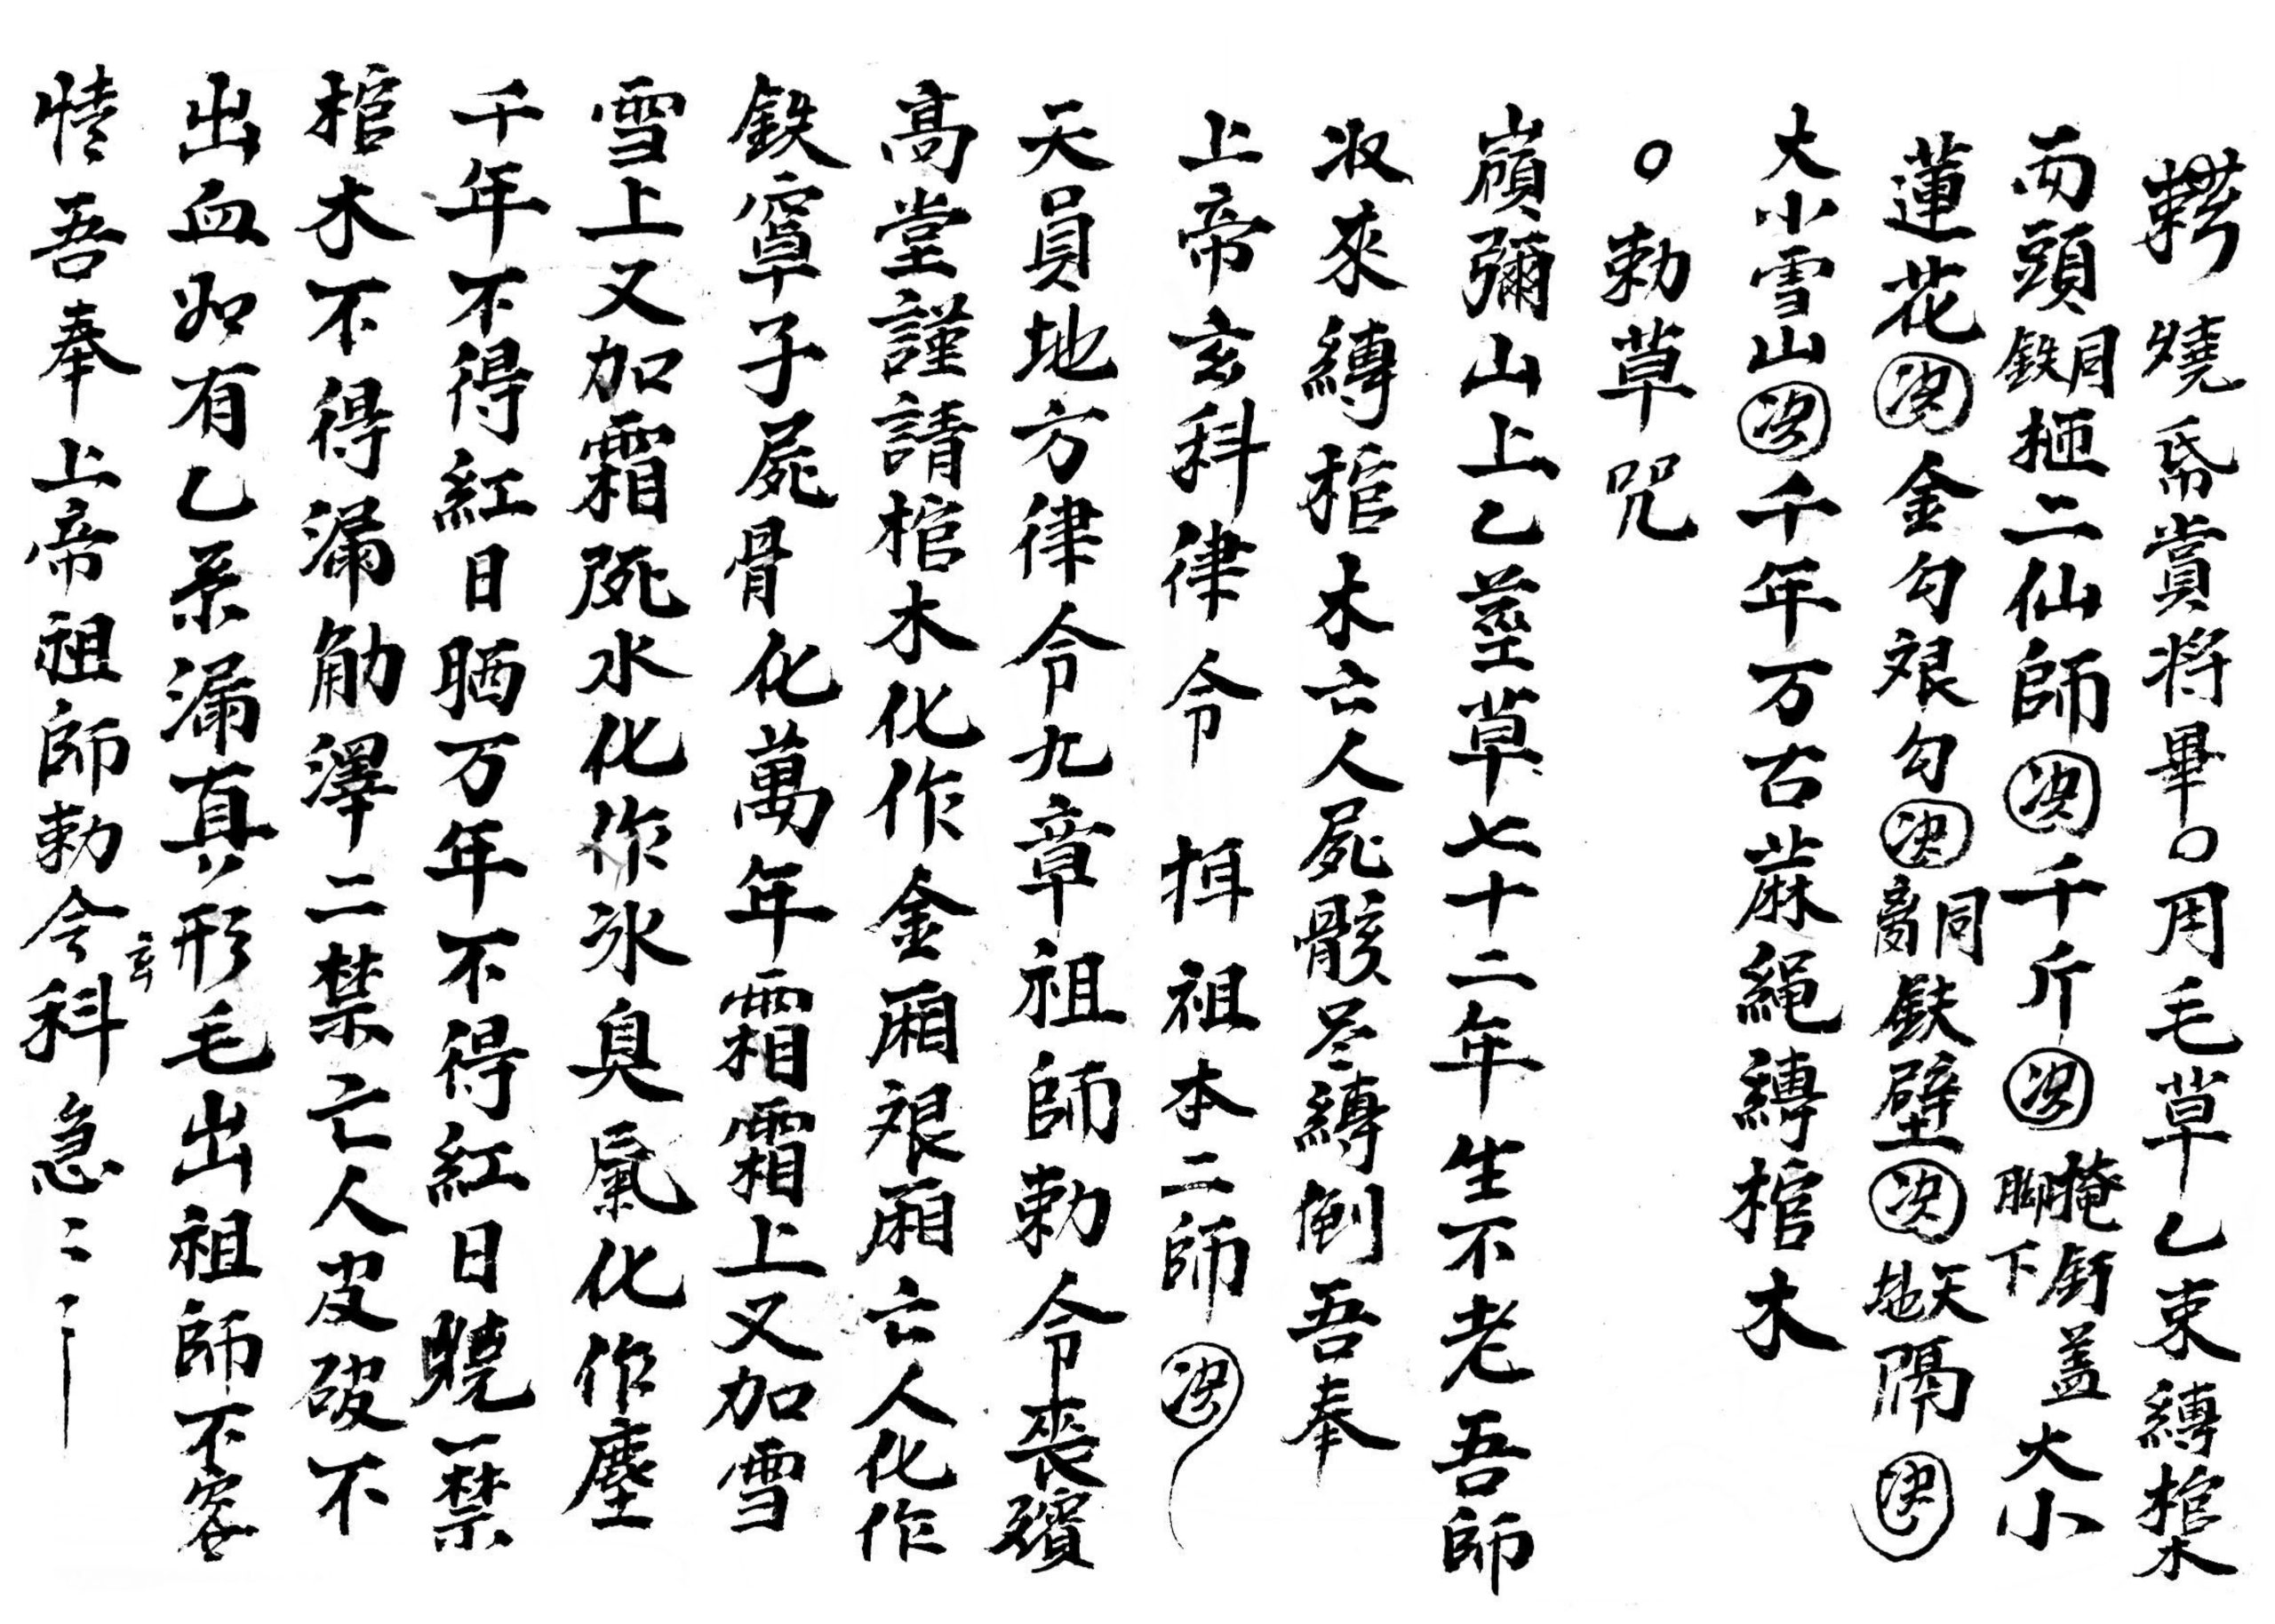 燒帋賞將畢○用毛草乙束縛棺木
兩頭銅鉄枷二仙師決千斤決掩脚釘下蓋大小
蓮花決金勾艮勾決同鉄壁決天地隔決
大小雪山決千年万古蔴縄縛棺木
○勅草咒
嶺彌山上乙莖草七十二年生不老吾師
收來縛棺木亡人屍骸尽縛倒吾奉
上帝玄科律令　祖本二師決
天員地方律令九章祖師勅令丧殯
高堂謹請棺木化作金廂艮廂亡人化作
鉄窂子屍骨化萬年霜霜上又加雪
雪上又加霜屍水化作氷臭氣化作塵
千年不得紅日晒万年不得紅日曉一禁
棺木不得漏觔澤二禁亡人皮破不
出血如有乙系漏真形毛出祖師不容
情吾奉上帝祖師勅令玄科急〻〻